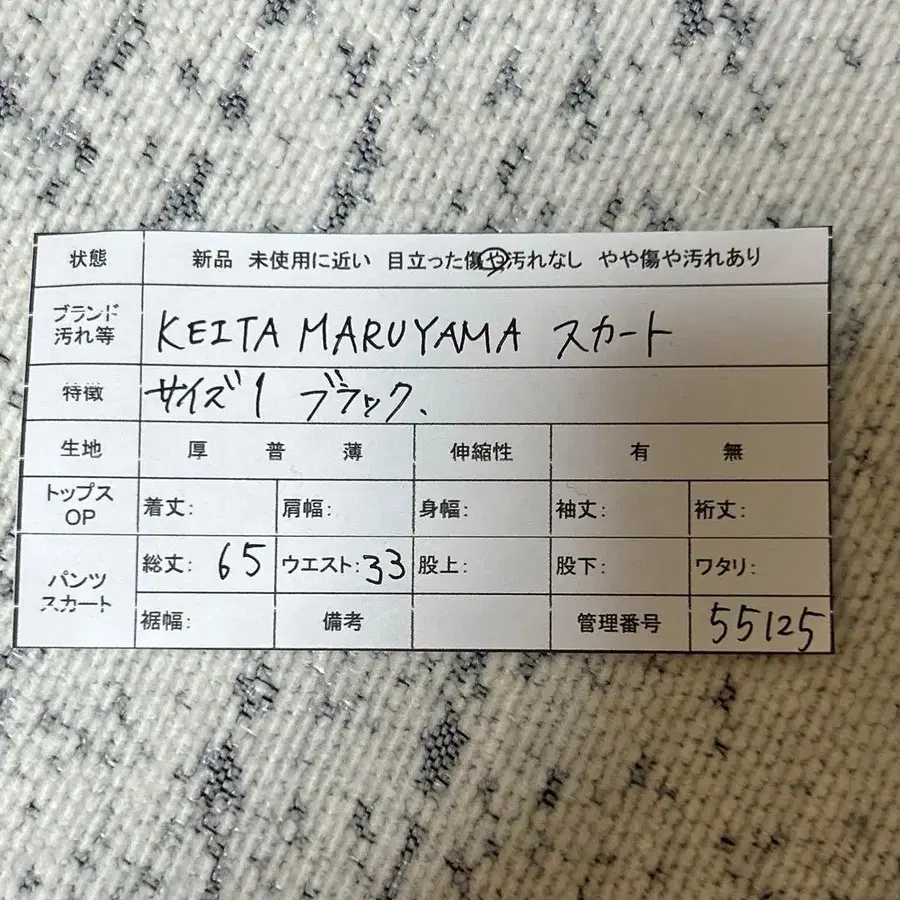 状態 新品 未使用に近い 目立った傷や汚れなし やや傷や汚れあり
ブランド
汚れ等
KEITA MARUYAMA スカート
特徴 サイズ1 ブラック.
生地 厚 普 薄 伸縮性 有 無
トップス
OP
着丈: 肩幅: 身幅: 袖丈: 裄丈:
パンツ
スカート
総丈: 65 ウエスト: 33 股上: 股下: ワタリ:
裾幅: 備考 管理番号 55125